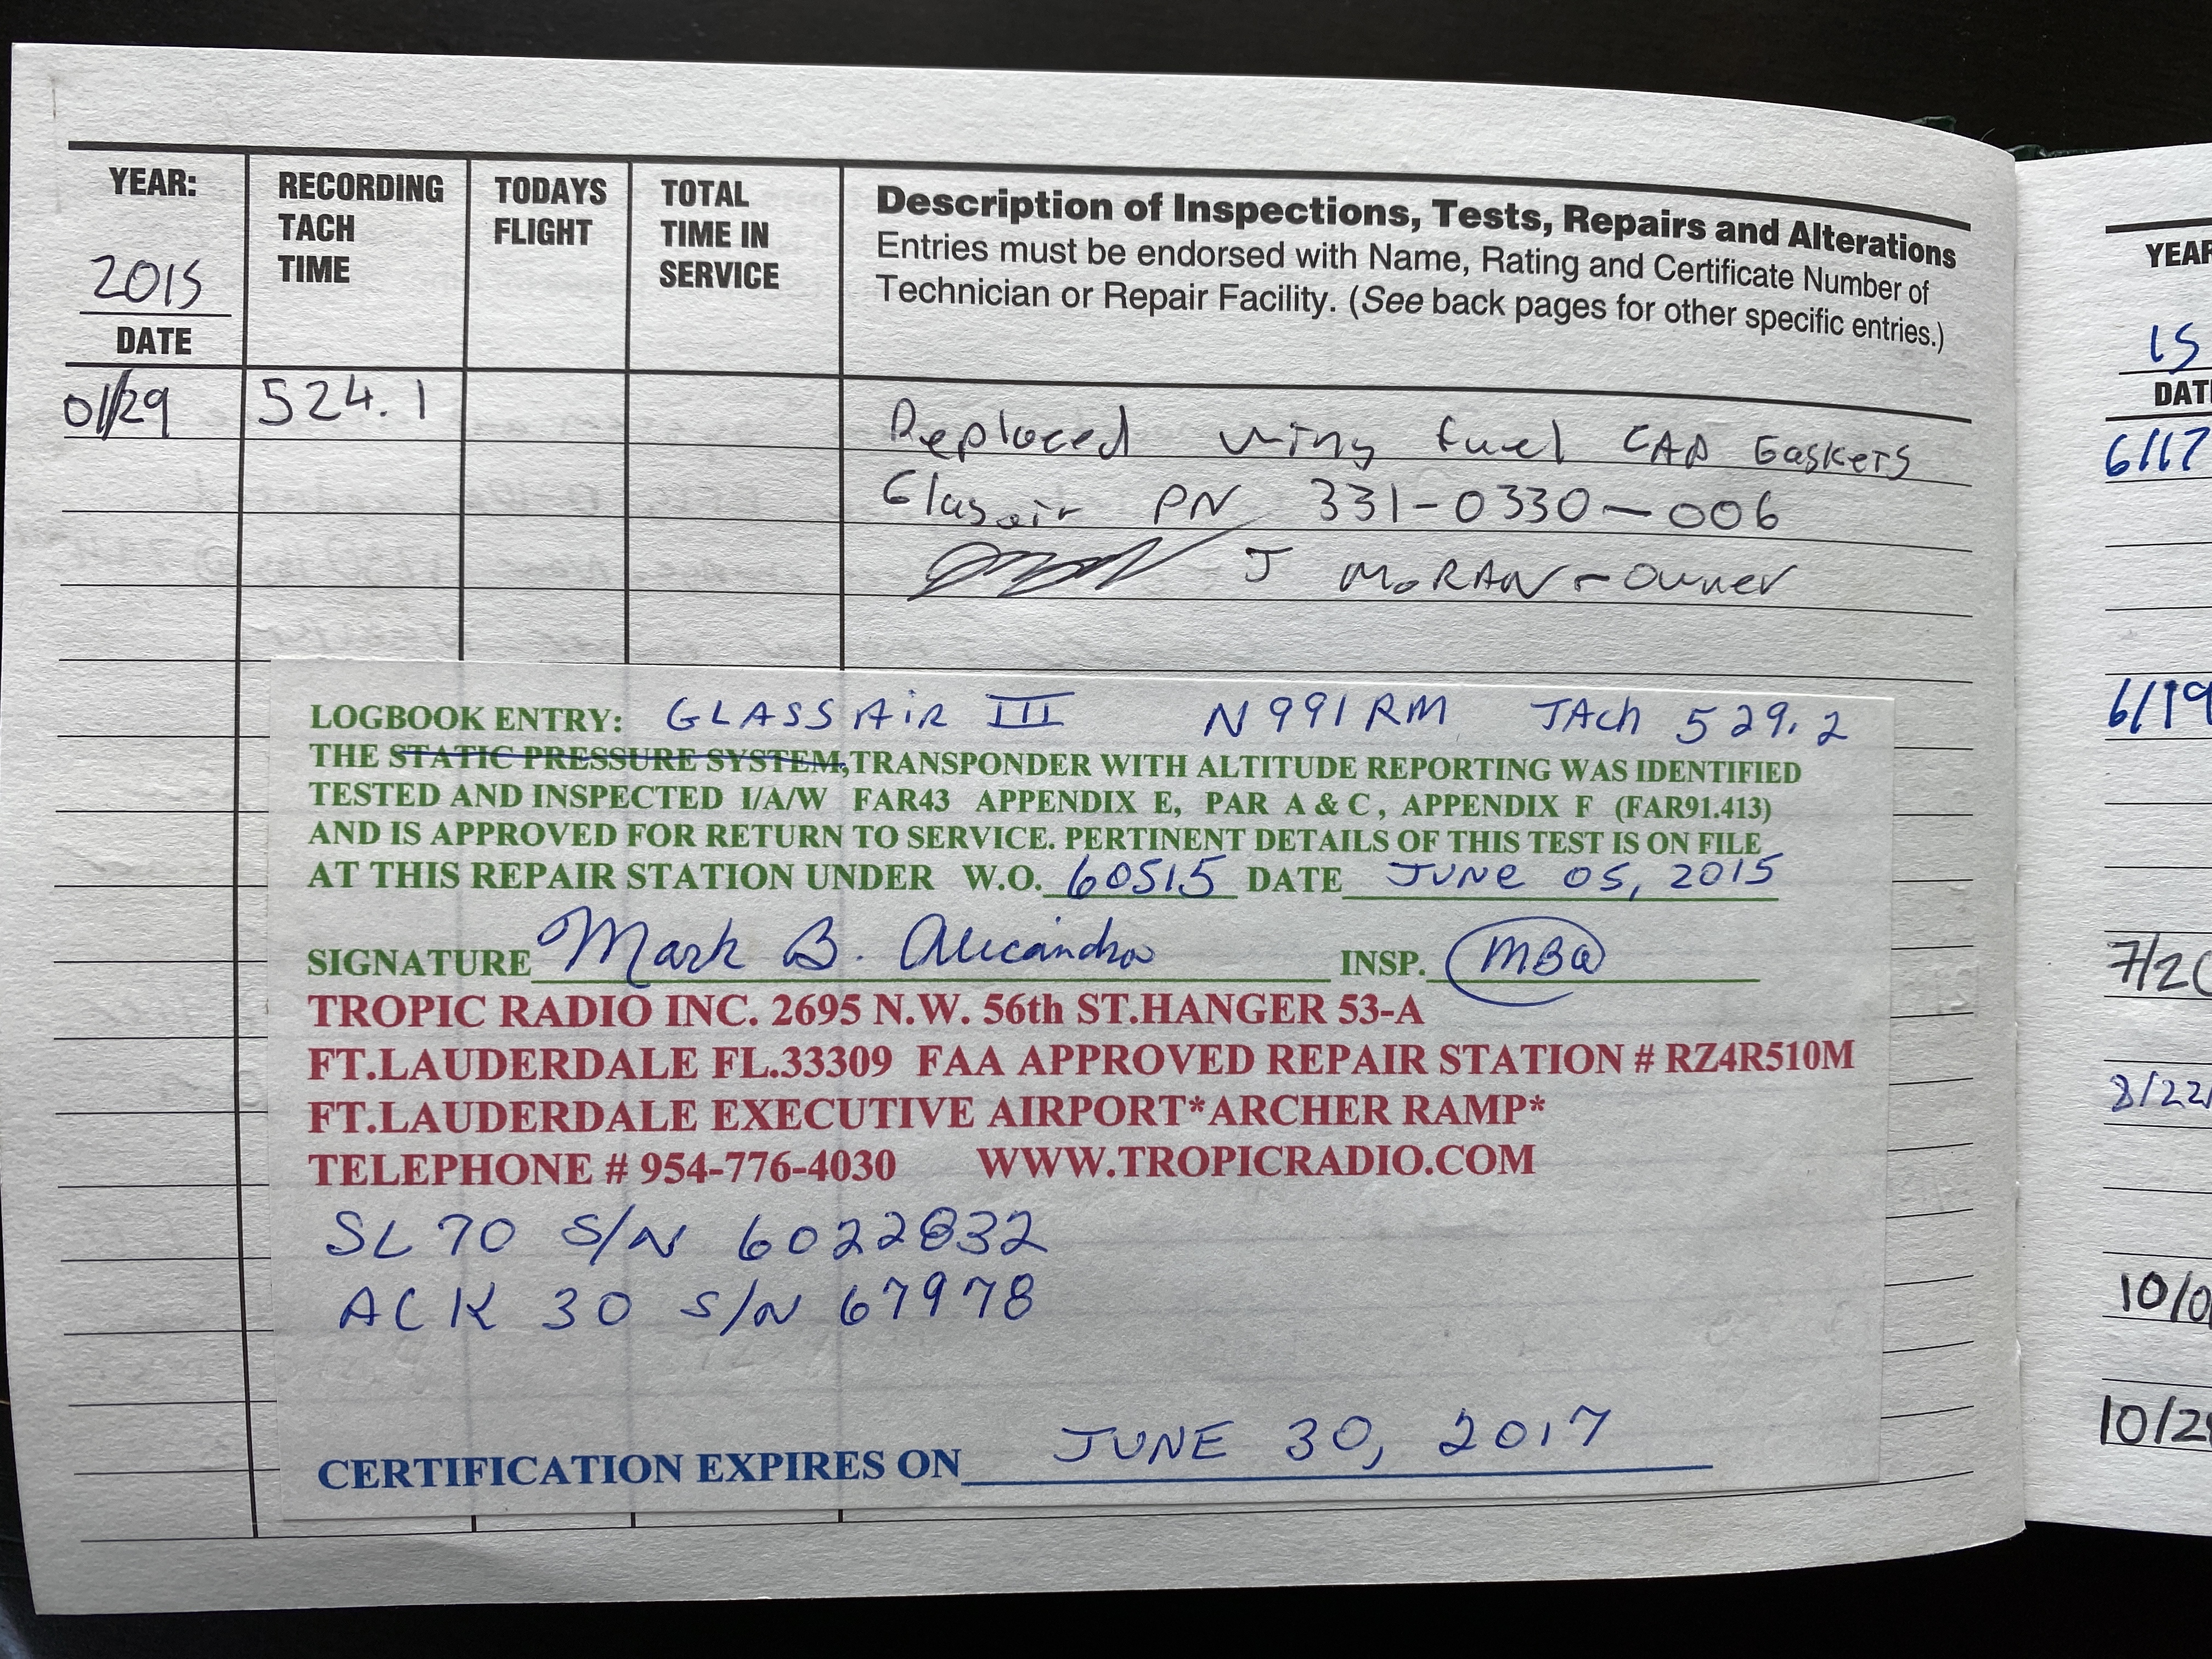 YEAR:
2015
DATE
RECORDING
TACH
TIME
TODAYS
FLIGHT
TOTAL
TIME IN
SERVICE
Description of Inspections, Tests, Repairs and Alterations
Entries must be endorsed with Name, Rating and Certificate Number of
Technician or Repair Facility. (See back pages for other specific entries.)
01/29 524.1 Replaced wing fuel CAP Gaskets
Glasair PN 331-0330-006
J MORAN - Owner
LOGBOOK ENTRY: GLASSAIR III N991RM TACH 529.2
THE STATIC PRESSURE SYSTEM, TRANSPONDER WITH ALTITUDE REPORTING WAS IDENTIFIED
TESTED AND INSPECTED I/A/W FAR43 APPENDIX E, PAR A & C, APPENDIX F (FAR91.413)
AND IS APPROVED FOR RETURN TO SERVICE. PERTINENT DETAILS OF THIS TEST IS ON FILE
AT THIS REPAIR STATION UNDER W.O. 60515 DATE JUNE 05, 2015
SIGNATURE Mark B. INSP. MBA
TROPIC RADIO INC. 2695 N.W. 56th ST.HANGER 53-A
FT.LAUDERDALE FL.33309 FAA APPROVED REPAIR STATION # RZ4R510M
FT.LAUDERDALE EXECUTIVE AIRPORT*ARCHER RAMP*
TELEPHONE # 954-776-4030 WWW.TROPICRADIO.COM
SL 70 S/N 6022832
ACK 30 S/N 67978
CERTIFICATION EXPIRES ON JUNE 30, 2017
YEAR
15
DAT
6/17
6/19
7/20
8/22/
10/0
10/2